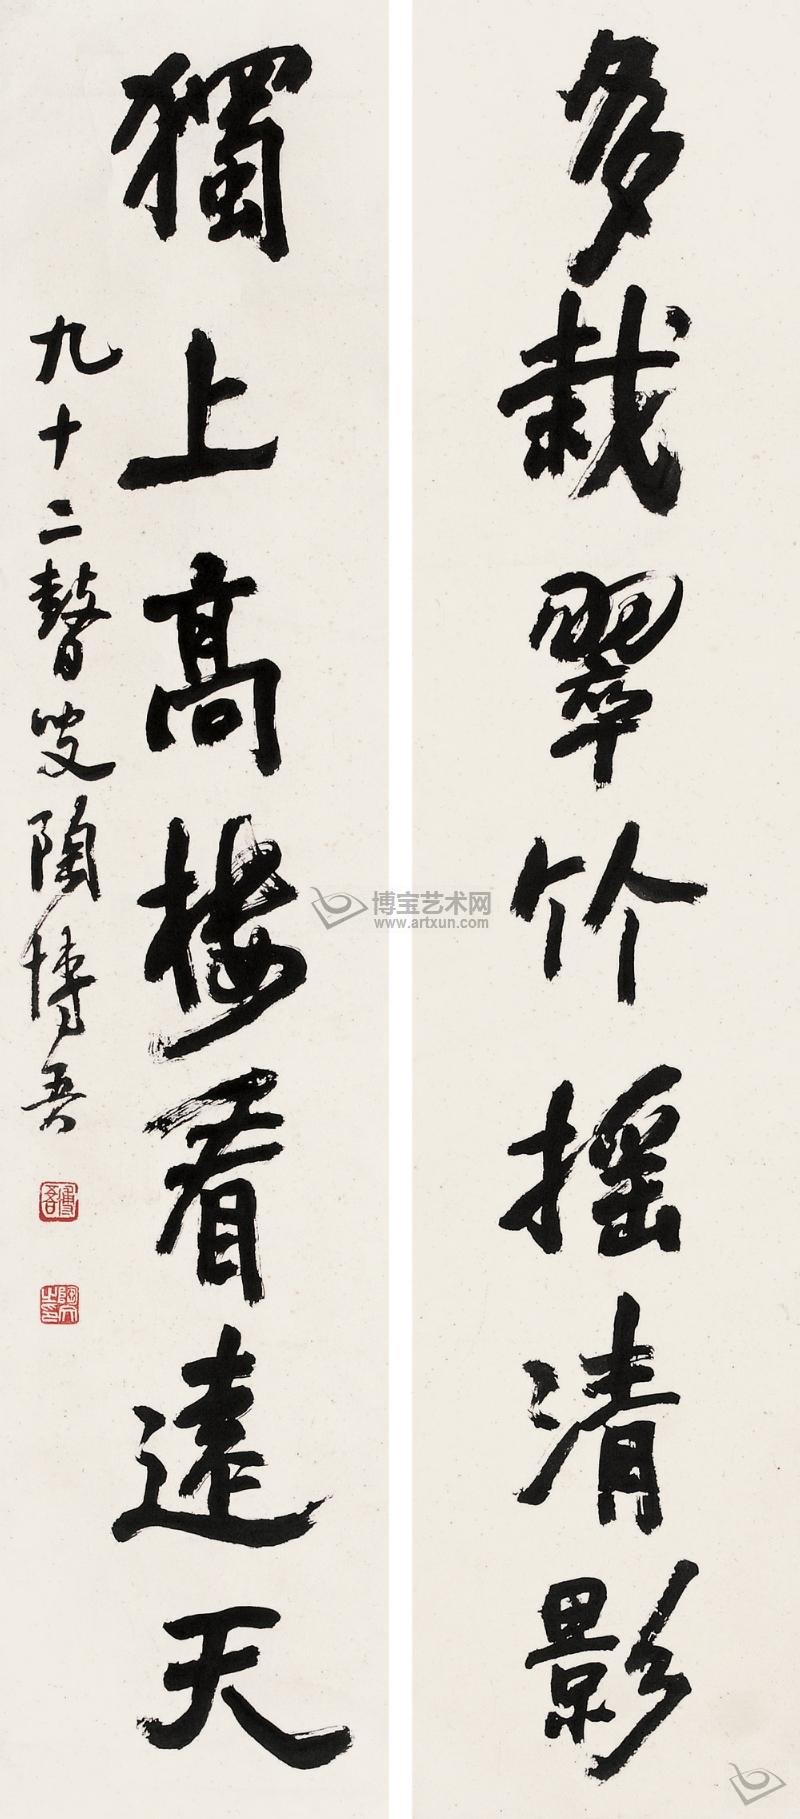 多栽翠竹摇清影
獨上高楼看遠天
九十二瞽叟陶博吾
博吾
陶文之印
博宝艺术网
www.artxun.com